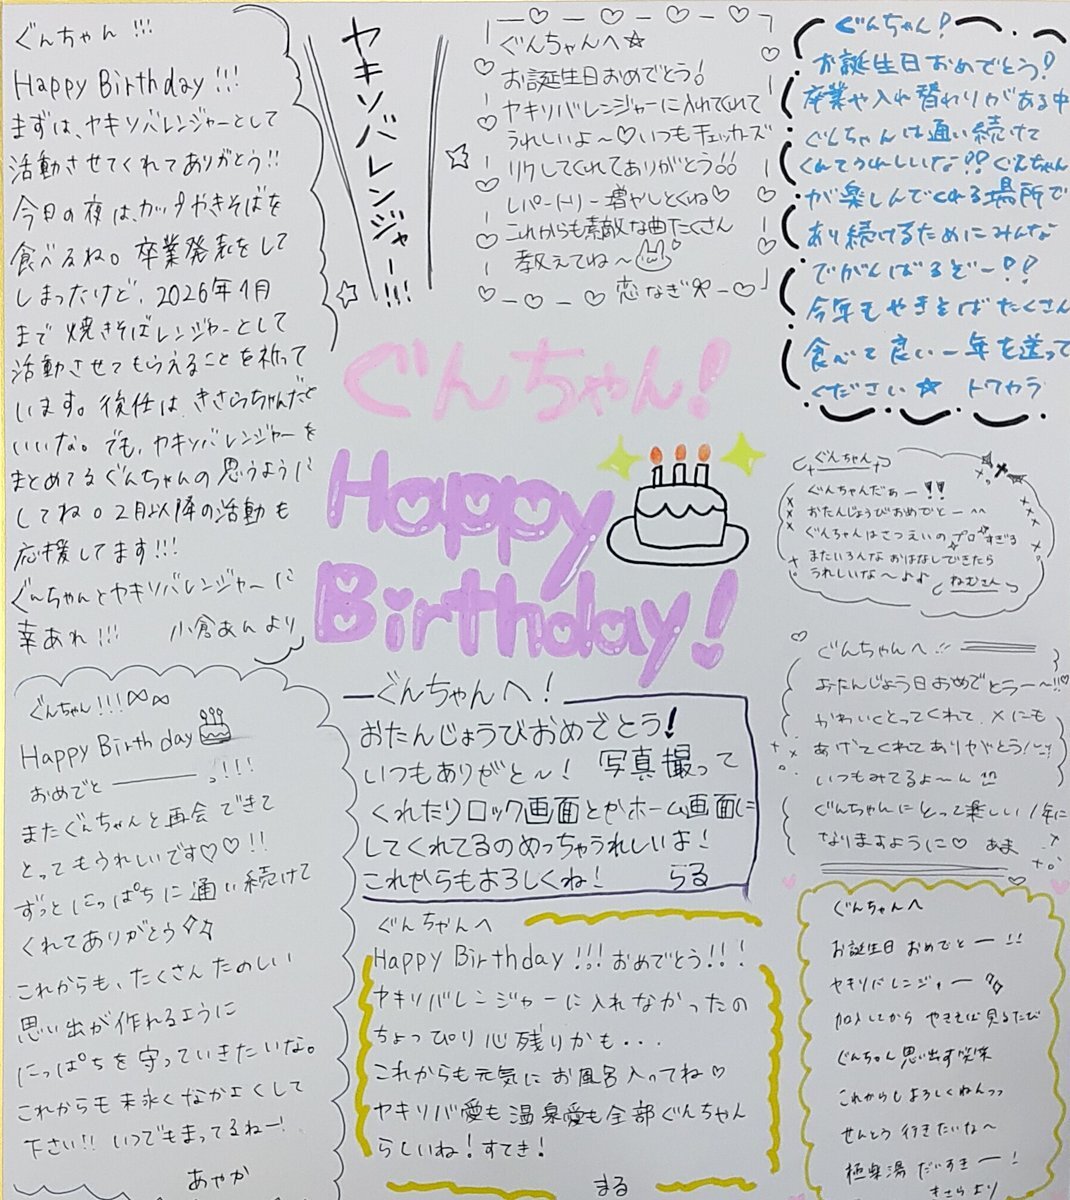 ぐんちゃん!!!
Happy Birthday!!!
まずは、ヤキソバレンジャーとして
活動させてくれてありがとう!!
今日の夜は、カップやきそばを
食べるね。卒業発表をして
しまったけど、2026年1月
まで焼きそばレンジャーとして
活動させてもらえることを祈って
います。後任は、きさらちゃんだと
いいな。でも、ヤキソバレンジャーを
まとめてるぐんちゃんの思うように
してね。2月以降の活動も
応援してます!!!
ぐんちゃんとヤキソバレンジャーに
幸あれ!!! 小倉あんより
ヤキソバレンジャー!!!
ぐんちゃんへ☆
お誕生日おめでとう!
ヤキソバレンジャーに入れてくれて
うれしいよ〜♡いつもチェッカーズ
リクしてくれてありがとう!!
レパートリー増やしとくね♡
これからも素敵な曲たくさん
教えてね〜
恋なぎ
ぐんちゃん!
お誕生日おめでとう!
卒業や入れ替わりがある中
ぐんちゃんは通い続けて
くれてうれしいな!!ぐんちゃん
が楽しんでくれる場所で
あり続けるためにみんな
でがんばるぞー!!
今年もやきそばたくさん
食べて良い一年を送って
ください☆ トワカラ
ぐんちゃん!
Happy
Birthday!
ぐんちゃん
ぐんちゃんだぁー!!
おたんじょうびおめでとー^^
ぐんちゃんはさつえいのプロすぎる
またいろんなおはなしできたら
うれしいな〜♪♪
ねむさん
ぐんちゃんへ!!
おたんじょう日おめでとうー〜!!♡
かわいくとってくれて、Xにも
あげてくれてありがとう!
いつもみてるよ〜ん
ぐんちゃんにとって楽しい1年に
なりますように♡ あま
ぐんちゃん!!!
Happy Birthday
おめでとー!!!
またぐんちゃんと再会できて
とってもうれしいです♡♡!!
ずっとにっぱちに通い続けて
くれてありがとう
これからも、たくさんたのしい
思い出が作れるように
にっぱちを守っていきたいな。
これからも末永くなかよくして
下さい!! いつでもまってるねー!
あやか
ぐんちゃんへ!
おたんじょうびおめでとう!
いつもありがと〜! 写真撮って
くれたりロック画面とかホーム画面に
してくれてるのめっちゃうれしいよ!
これからもよろしくね! らる
ぐんちゃんへ
Happy Birthday!!!おめでとう!!!
ヤキソバレンジャーに入れなかったの
ちょっぴり心残りかも・・・
これからも元気にお風呂入ってね♡
ヤキソバ愛も温泉愛も全部ぐんちゃん
らしいね!すてき!
まる
ぐんちゃんへ
お誕生日おめでとー!!
ヤキソバレンジャー
加入してから やきそば見るたび
ぐんちゃん思い出す笑
これからもよろしくねんっっ
せんとう行きたいな〜
極楽湯だいすきー!
きさらより